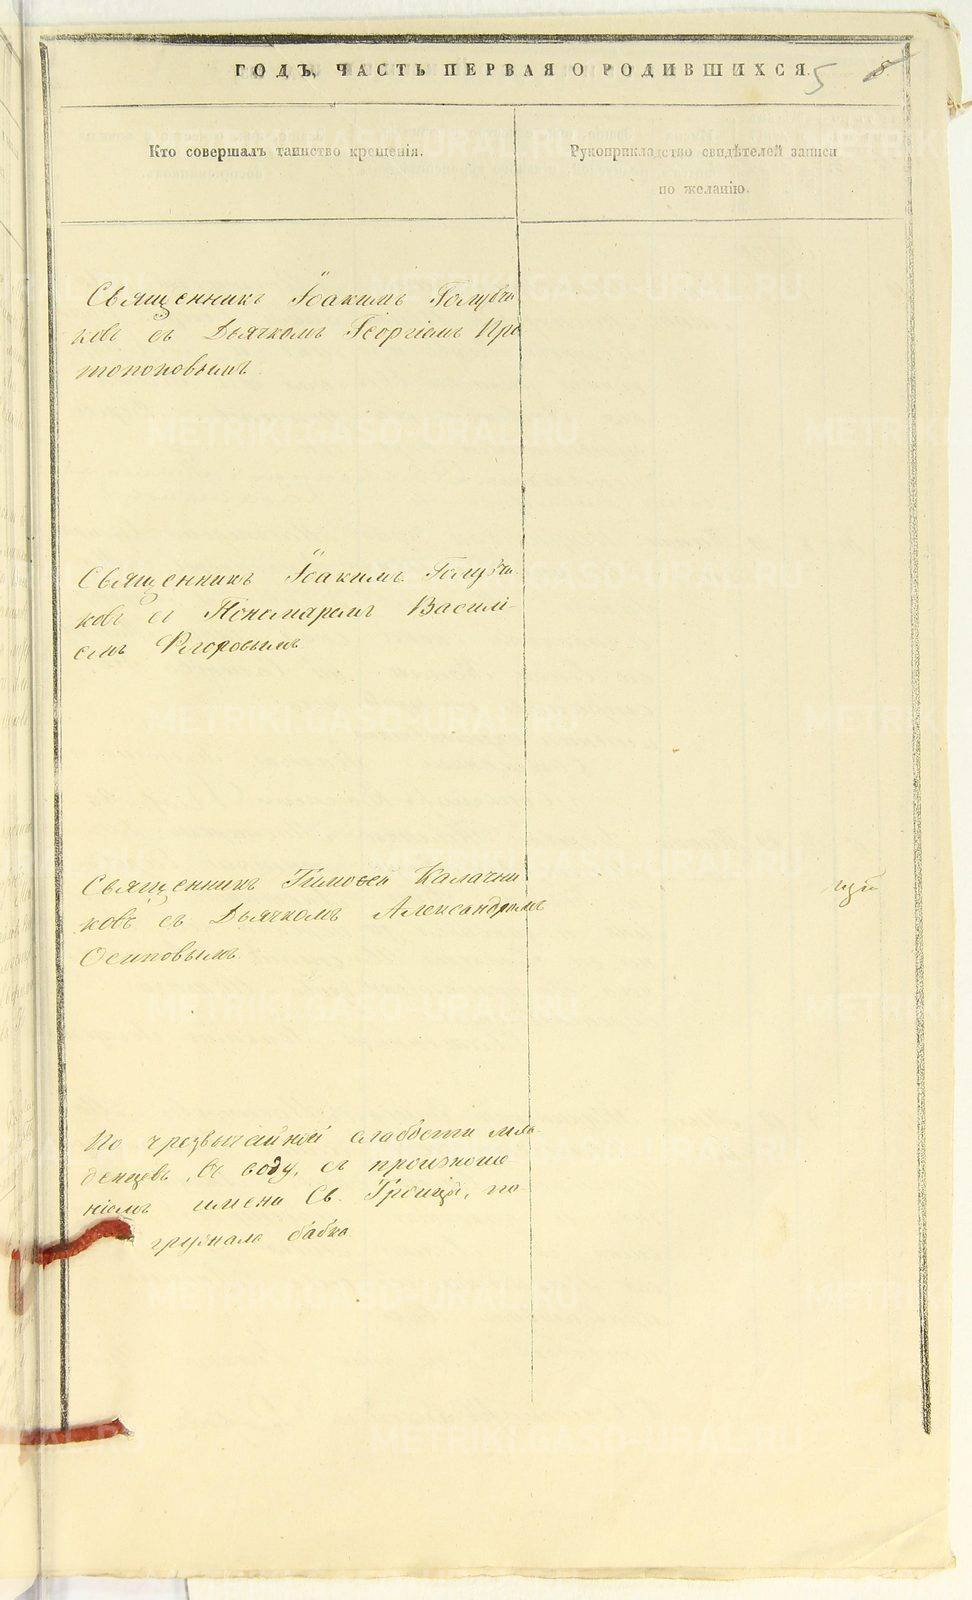 ГОДЪ, ЧАСТЬ ПЕРВАЯ О РОДИВШИХСЯ. 5
Кто совершалъ таинство крещенія.
Рукоприкладство свидѣтелей записи
по желанію.
Священникъ Іоакимъ Голубчи
ковъ съ Дьячкомъ Георгіемъ Про
топоповымъ.
Священникъ Іоакимъ Голубчи
ковъ съ Пономаремъ Василі-
емъ Флоровымъ
Священникъ Тимоѳей Калачни
ковъ съ Дьячкомъ Александромъ
Осиповымъ.
По чрезвычайной слабости мла-
денцевъ, въ воду, съ произноше
ніемъ имени Св. Троицы, по
гружала бабка
METRIKI.GASO-URAL.RU